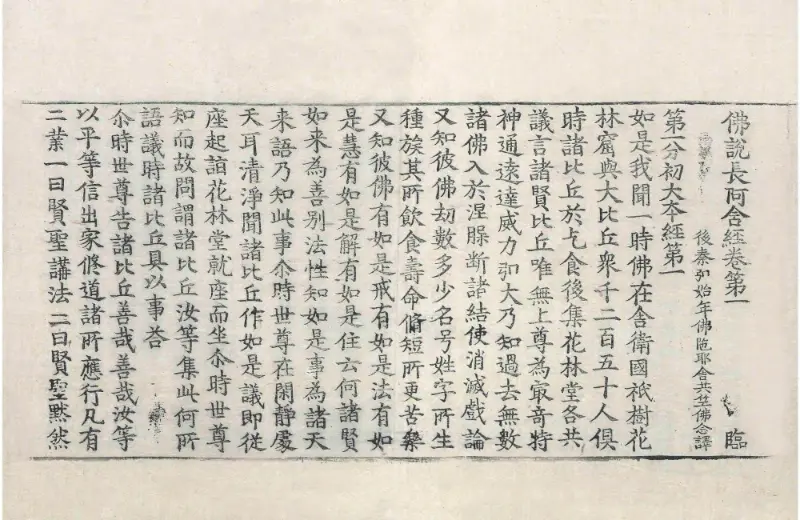 佛說長阿含經卷第一 臨
後秦弘始年佛陁耶舍共竺佛念譯
第一分初大本經第一
如是我聞一時佛在舍衛國祇樹花
林窟與大比丘衆千二百五十人俱
時諸比丘於乞食後集花林堂各共
議言諸賢比丘唯無上尊為冣奇特
神通遠達威力弘大乃知過去無數
諸佛入於涅槃斷諸結使消滅戲論
又知彼佛劫數多少名号姓字所生
種族其所飲食壽命脩短所更苦樂
又知彼佛有如是戒有如是法有如
是慧有如是解有如是住云何諸賢
如来為善別法性知如是事為諸天
来語乃知此事尒時世尊在閑靜處
天耳清淨聞諸比丘作如是議即從
座起詣花林堂就座而坐尒時世尊
知而故問謂諸比丘汝等集此何所
語議時諸比丘具以事荅
尒時世尊告諸比丘善哉善哉汝等
以平等信出家修道諸所應行凡有
二業一曰賢聖講法二曰賢聖默然